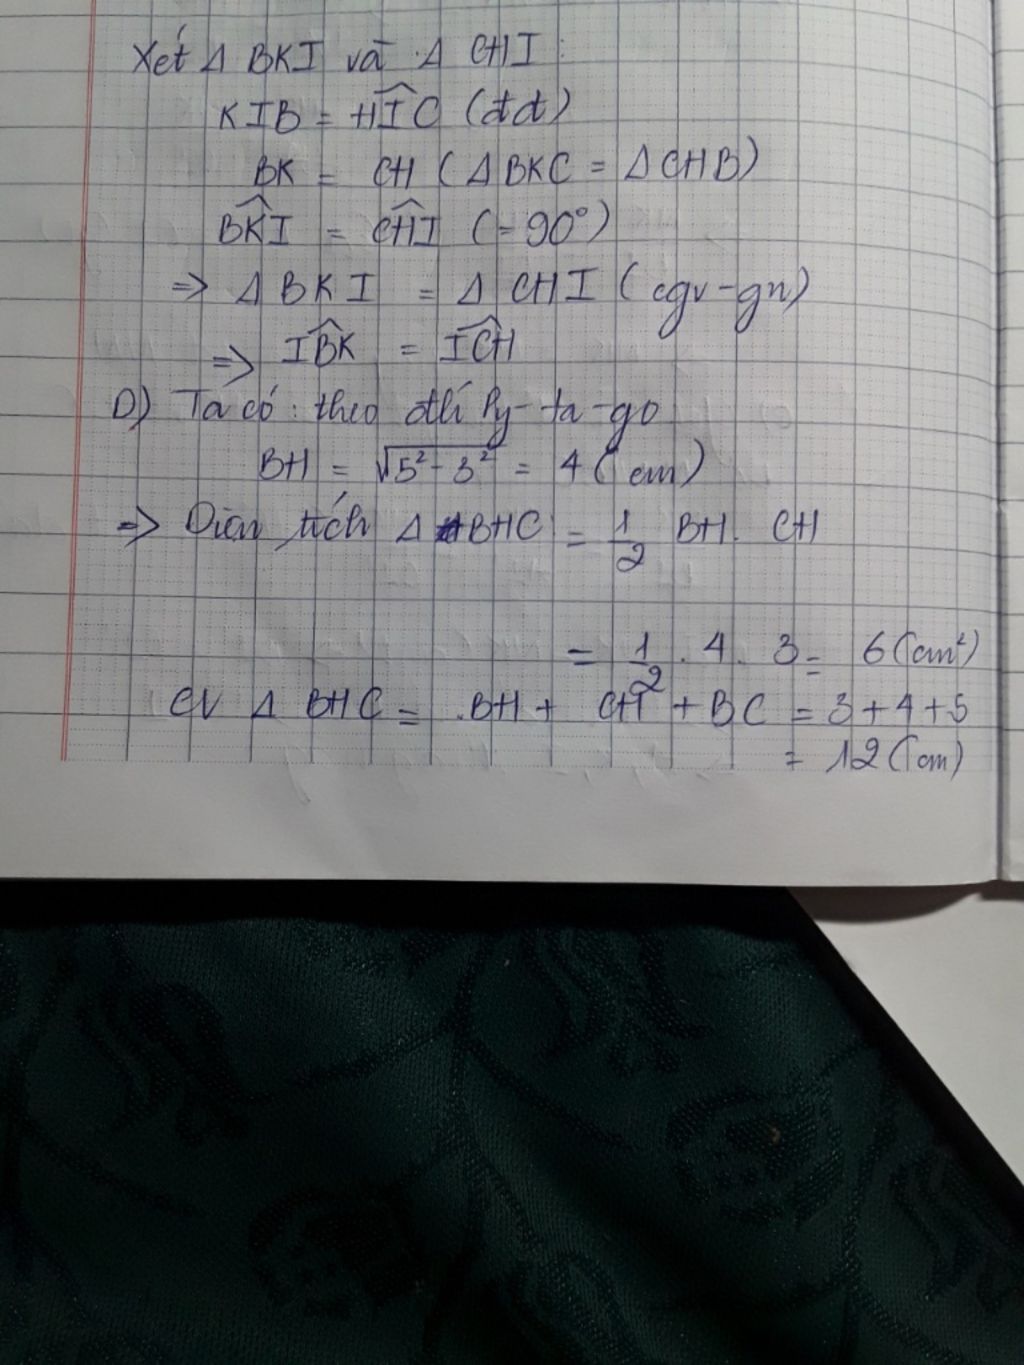 Xét Δ BKI và Δ CHI:
KIB = HIC (đđ)
BK = CH (Δ BKC = Δ CHB)
BKI = CHI (= 90°)
=> Δ BKI = Δ CHI (cgv-gn)
=> IBK = ICH
D) Ta có: theo đlí Py-ta-go
BH = √5² - 3² = 4 (cm)
=> Diện tích Δ BHC = 1/2 BH. CH
= 1/2 . 4. 3 = 6 (cm²)
CV Δ BHC = BH + CH + BC = 3 + 4 + 5
= 12 (cm)